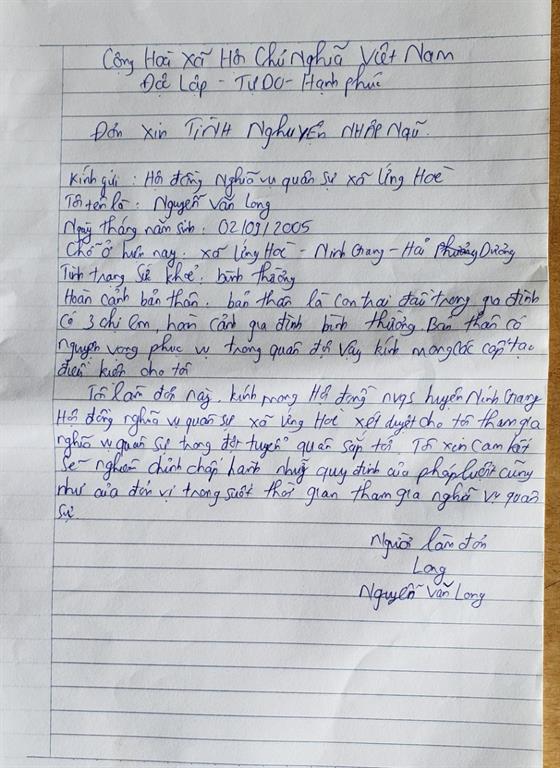 Cộng Hoà xã Hội Chủ Nghĩa Việt Nam
Độc Lập - Tự DO - Hạnh phúc
Đơn xin Tình Nghuyện Nhập Ngũ.
Kính gửi : Hội đồng Nghĩa vụ quân sự xã Ứng Hoè
Tôi tên là : Nguyễn Văn Long
Ngày tháng năm sinh : 02/09/2005
Chỗ ở hiện nay : xã Ứng Hoè - Ninh Giang - Hải Dương
Tình trạng sức khoẻ : bình thường
Hoàn cảnh bản thân . bản thân là con trai đầu trong gia đình
có 3 chị em, hoàn cảnh gia đình bình thường Bản thân có
nguyện vọng phục vụ trong quân đội vậy kính mong các cấp tạo
điều kiện cho tôi
Tôi làm đơn này . kính mong Hội đồng nvqs huyện Ninh Giang
Hội đồng nghĩa vụ quân sự xã Ứng Hoè xét duyệt cho tôi tham gia
nghĩa vụ quân sự trong đợt tuyển quân sắp tới Tôi xin cam kết
sẽ nghiêm chỉnh chấp hành những quy định của pháp luật cũng
như của đơn vị trong suốt thời gian tham gia nghĩa vụ quân
sự
Người làm đơn
Long
Nguyễn Văn Long